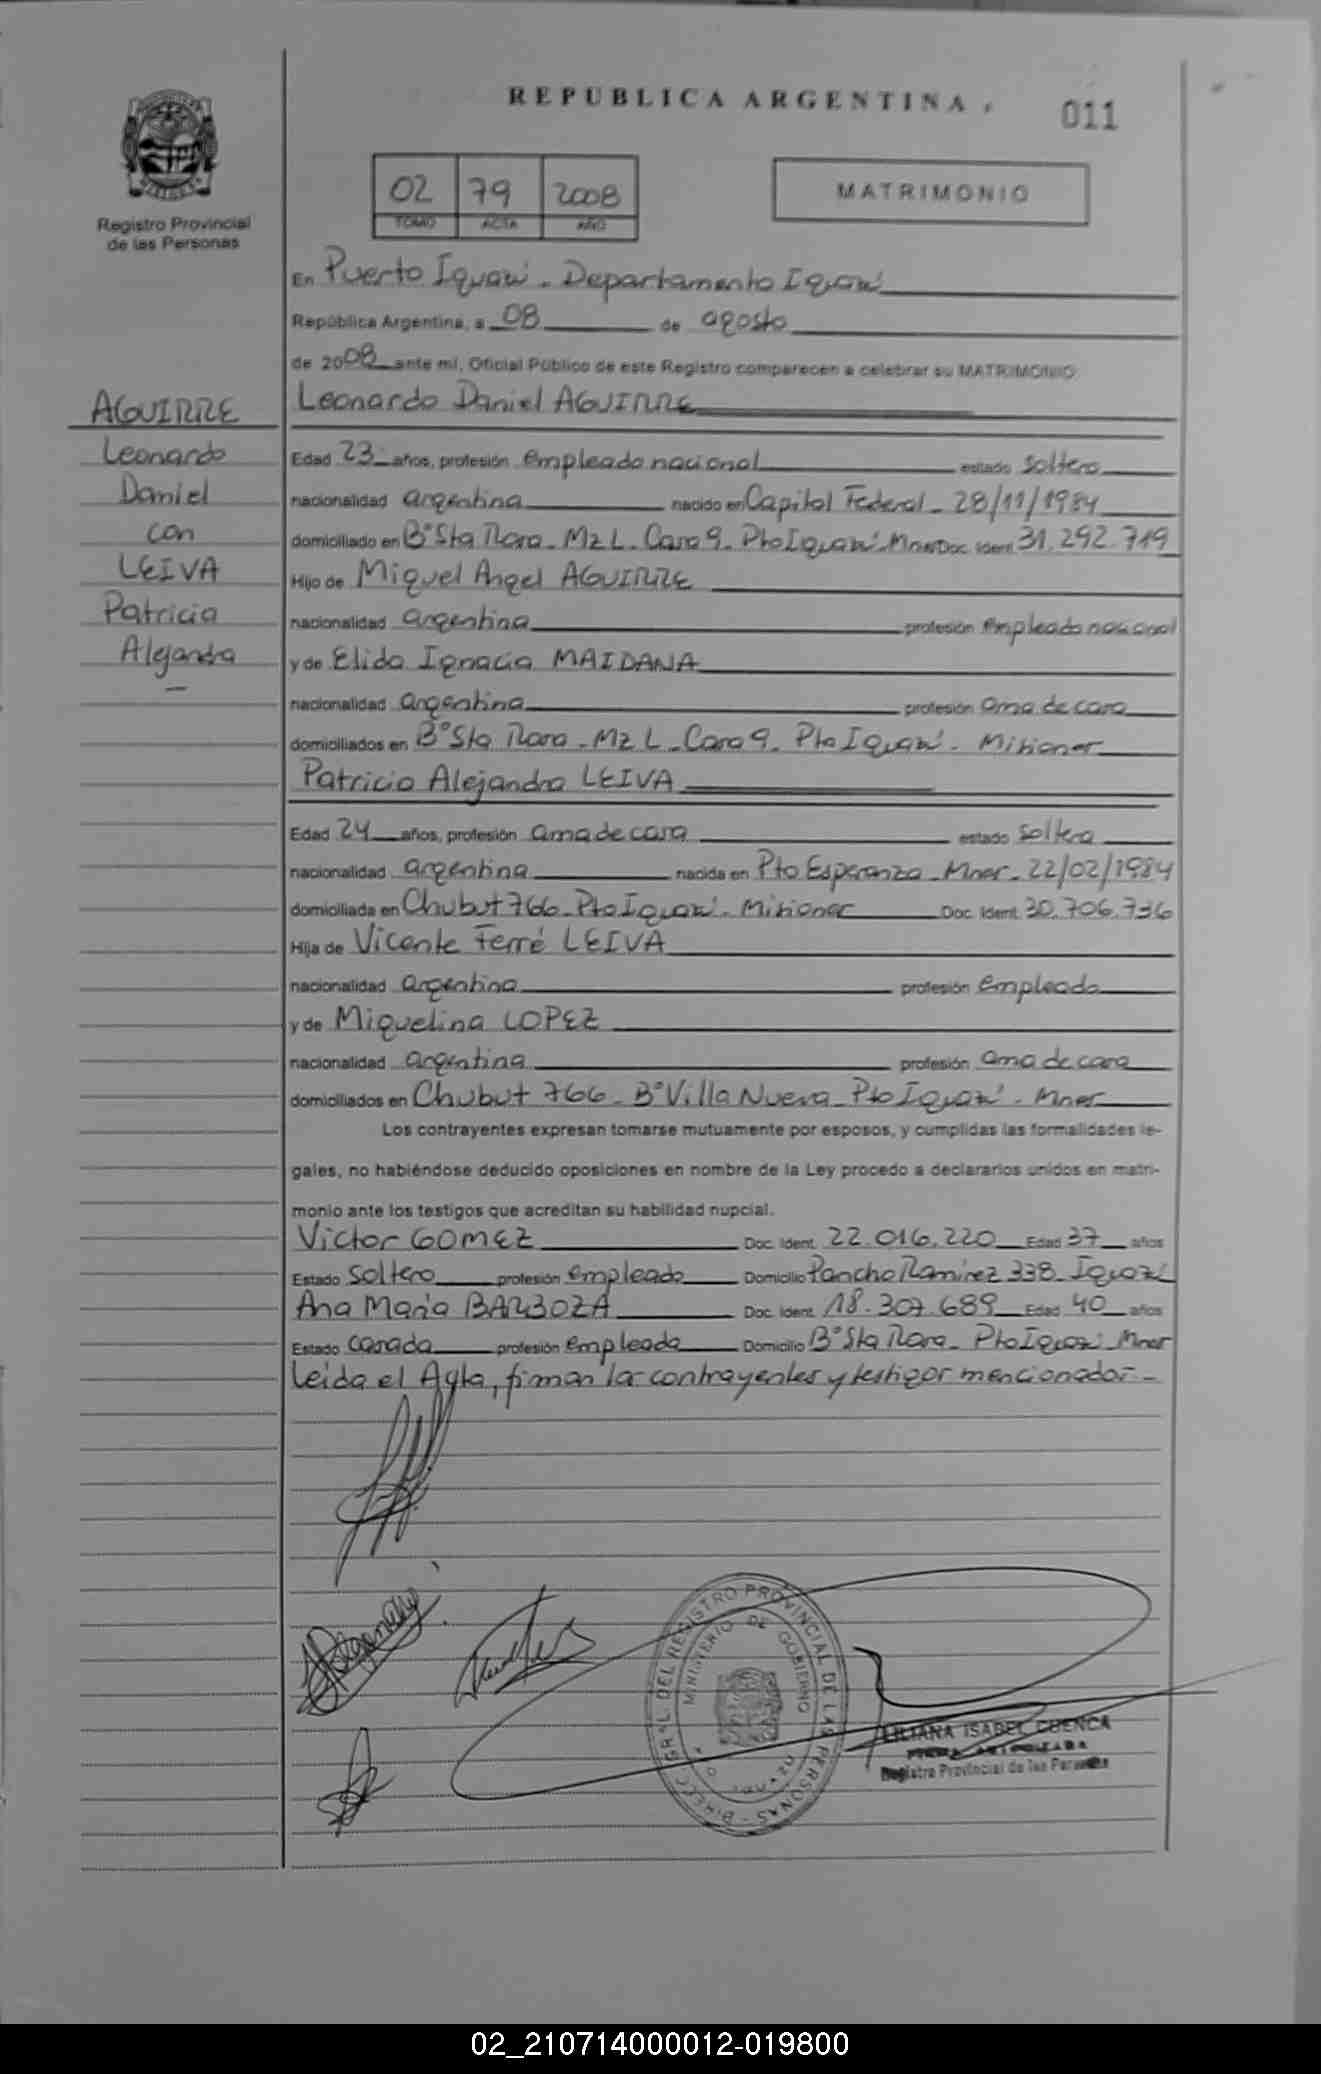 REPUBLICA ARGENTINA
011
Registro Provincial
de las Personas
02 79 2008
TOMO ACTA AÑO
MATRIMONIO
En Puerto Iguazú - Departamento Iguazú
República Argentina, a 08 de agosto
de 2008 ante mi, Oficial Público de este Registro comparecen a celebrar su MATRIMONIO
Leonardo Daniel AGUIRRE
AGUIRRE
Leonardo
Daniel
con
LEIVA
Patricia
Alejandra
Edad 23 años, profesión empleado nacional estado soltero
nacionalidad argentina nacido en Capital Federal - 28/11/1984
domiciliado en B° Sta Rosa - Mz L - Casa 9 - Pto Iguazú - Mnes Doc. Ident. 31.292.719
Hijo de Miguel Angel AGUIRRE
nacionalidad argentina profesión empleado nacional
y de Elida Ignacia MAIDANA
nacionalidad argentina profesión ama de casa
domiciliados en B° Sta Rosa - Mz L - Casa 9 - Pto Iguazú - Misiones
Patricia Alejandra LEIVA
Edad 24 años, profesión ama de casa estado soltera
nacionalidad argentina nacida en Pto Esperanza - Mnes - 22/02/1984
domiciliada en Chubut 766 - Pto Iguazú - Misiones Doc. Ident. 30.706.736
Hija de Vicente Ferré LEIVA
nacionalidad argentina profesión empleado
y de Miguelina LOPEZ
nacionalidad argentina profesión ama de casa
domiciliados en Chubut 766 - B° Villa Nueva - Pto Iguazú - Mnes
Los contrayentes expresan tomarse mutuamente por esposos, y cumplidas las formalidades le-
gales, no habiéndose deducido oposiciones en nombre de la Ley procedo a declararlos unidos en matri-
monio ante los testigos que acreditan su habilidad nupcial.
Victor GOMEZ Doc. Ident. 22.016.220 Edad 37 años
Estado soltero profesión empleado Domicilio Pancho Ramirez 338 - Iguazú
Ana Maria BARBOZA Doc. Ident. 18.307.689 Edad 40 años
Estado casada profesión empleada Domicilio B° Sta Rosa - Pto Iguazú - Mnes
Leida el Acta, firman los contrayentes y testigos mencionados.-
DIRECC. GRAL. DEL REGISTRO PROVINCIAL DE LAS PERSONAS
MINISTERIO DE GOBIERNO
LILIANA ISABEL CUENCA
Registro Provincial de las Personas
02_210714000012-019800